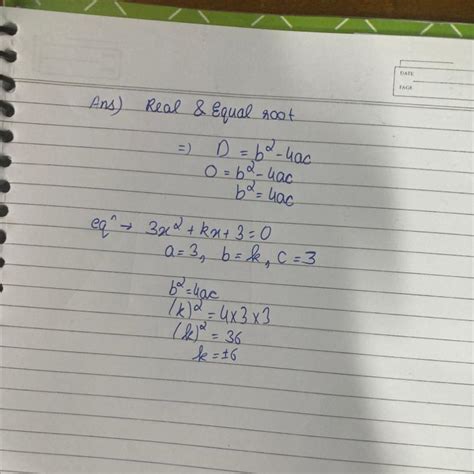 DATE
PAGE
Ans) Real & Equal root
=) D = b² - 4ac
0 = b² - 4ac
b² = 4ac
eqⁿ → 3x² + kx + 3 = 0
a = 3, b = k, c = 3
b² = 4ac
(k)² = 4 x 3 x 3
(k)² = 36
k = ±6